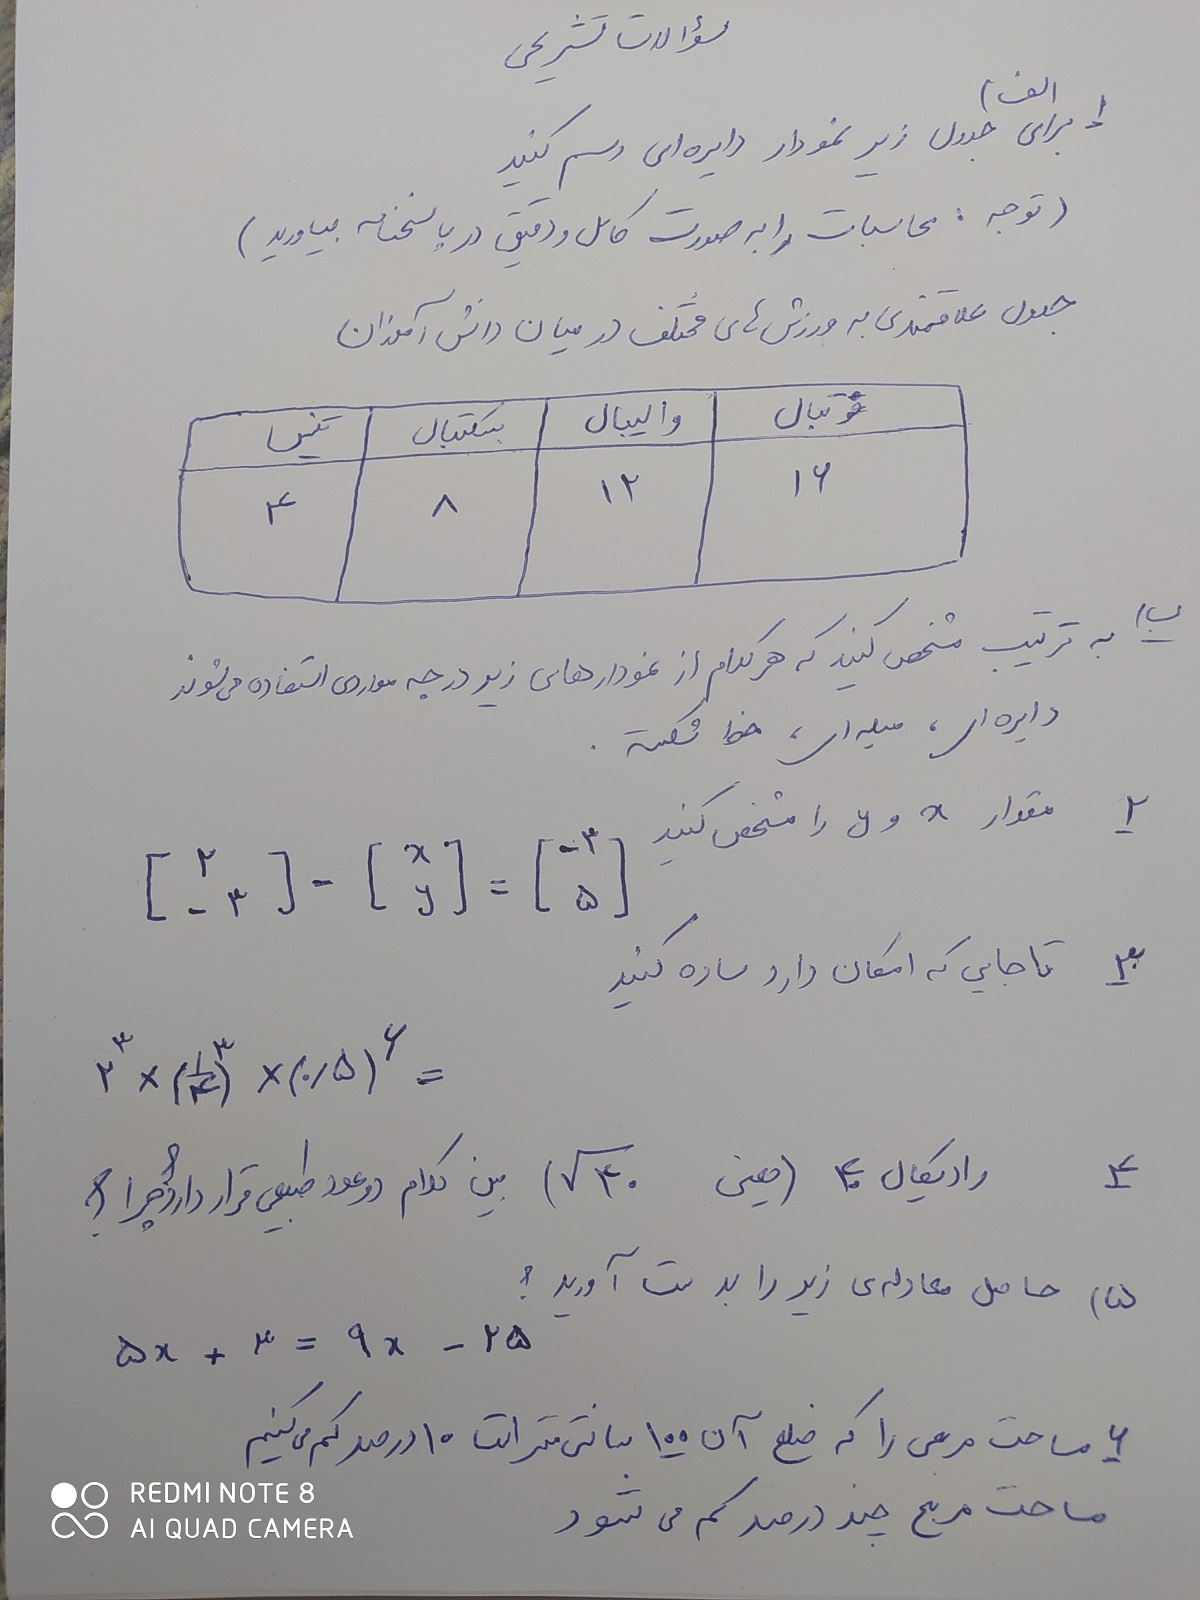 سؤالات تشریحی
الف)
۱ برای جدول زیر نمودار دایره‌ای رسم کنید
(توجه : محاسبات را به صورت کامل و دقیق در پاسخنامه بیاورید)
جدول علاقمندی به ورزش‌های مختلف در میان دانش آموزان
فوتبال والیبال بسکتبال تنیس
۱۶ ۱۲ ۸ ۴
ب) به ترتیب مشخص کنید که هر کدام از نمودارهای زیر در چه مواردی استفاده می‌شوند
دایره‌ای، میله‌ای، خط شکسته .
۲ مقدار x و y را مشخص کنید
[۲ -۳] - [x y] = [-۳ ۵]
۳ تا جایی که امکان دارد ساده کنید
۲^۳ × (۱/۴)^۳ × (۰/۵)^۶ =
۴ رادیکال ۴۰ (یعنی √۴۰) بین کدام دو عدد طبیعی قرار دارد؟ چرا؟
۵) حاصل معادله‌ی زیر را بدست آورید ؟
۵x + ۳ = ۹x - ۲۵
۶ مساحت مربعی را که ضلع آن ۱۰۰ سانتی‌متر است ۱۰ درصد کم می‌کنیم
مساحت مربع چند درصد کم می شود
REDMI NOTE 8
AI QUAD CAMERA